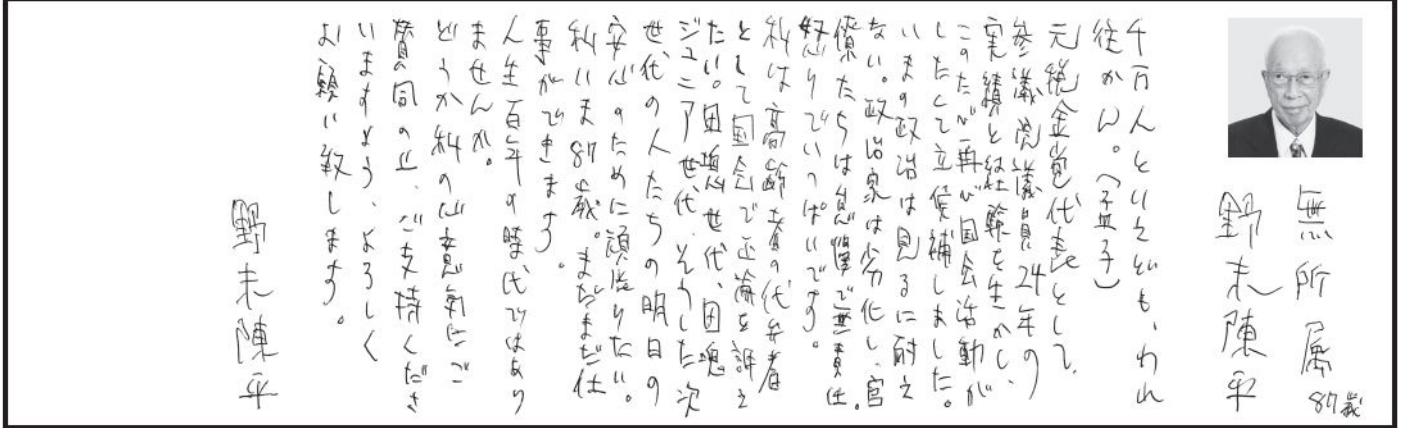 無所属
87歳
野末陳平
千万人といえども、われ
往かん。（孟子）
元税金党代表として、
参議院議員24年の
実績と経験を生かし、
このたび再び国会活動が
したくて立候補しました。
いまの政治は見るに耐え
ない。政治家は劣化し、官
僚たちは怠慢で無責任。
怒りでいっぱいです。
私は高齢者の代弁者
として国会で正論を訴え
たい。団塊世代、団塊
ジュニア世代、そうした次
世代の人たちの明日の
安心のために頑張りたい。
私いま87歳。まだまだ仕
事ができます。
人生百年の時代ではあり
ませんか。
どうか私の心意気にご
賛同の上、ご支持くださ
いますよう、よろしく
お願い致します。
野末陳平